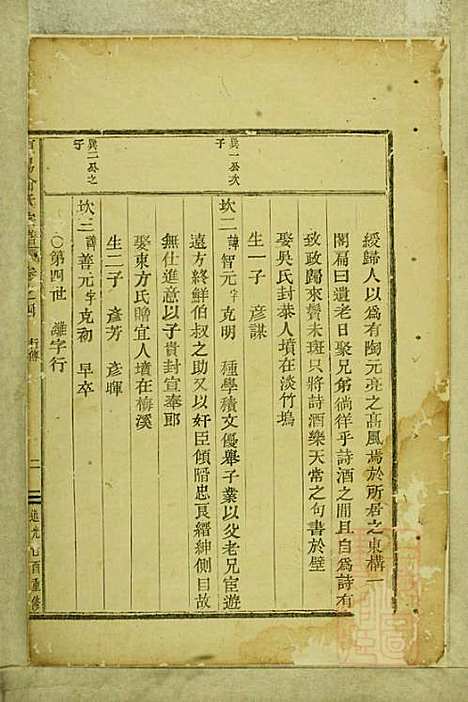 綬歸人以爲有陶元亮之高風焉於所君之東構一
閣扁曰遺老日聚兄弟徜徉乎詩酒之間且自爲詩有
致政歸來鬢未斑只將詩酒樂天常之句書於壁
娶吳氏封恭人墳在淡竹塢
生一子 彥謀
巽一公次子
坎二 諱智元字克明 種學積文優舉子業以父老兄宦遊
遠方終鮮伯叔之助又以奸臣傾陷忠良縉紳側目故
無仕進意以子貴封宣奉郎
娶東方氏贈宜人墳在梅溪
生二子 彥芳 彥暉
巽二公之子
坎三 諱善元字克初 早卒
〇第四世 離字行
卷之四 行傳 二 道光乙酉重修